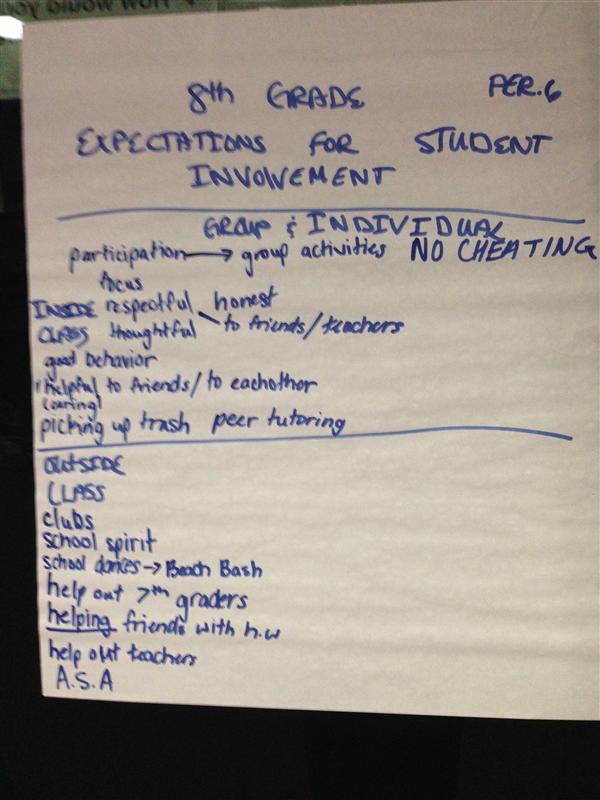 8th GRADE PER. 6
EXPECTATIONS FOR STUDENT
INVOLVEMENT
GROUP & INDIVIDUAL
participation → group activities NO CHEATING
focus
INSIDE respectful honest
CLASS thoughtful to friends/teachers
good behavior
helpful to friends/to eachother
(caring)
picking up trash peer tutoring
OUTSIDE
CLASS
clubs
school spirit
school dances → Beach Bash
help out 7th graders
helping friends with h.w
help out teachers
A.S.A